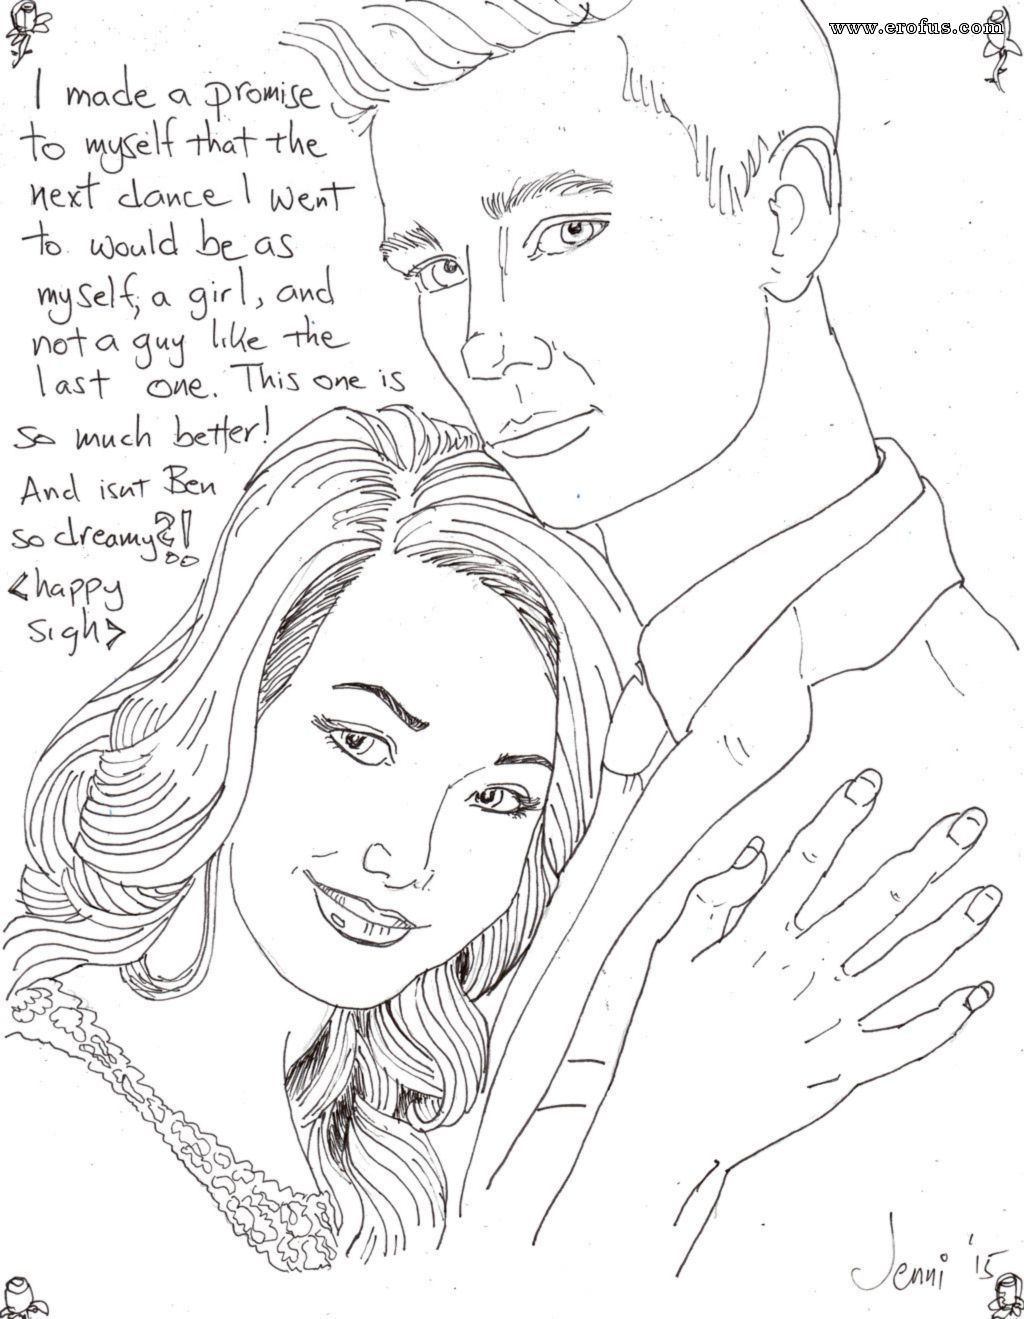 www.erofus.com
I made a promise
to myself that the
next dance I went
to would be as
myself, a girl, and
not a guy like the
last one. This one is
so much better!
And isnt Ben
so dreamy?!
<happy
sigh>
Jenni '15